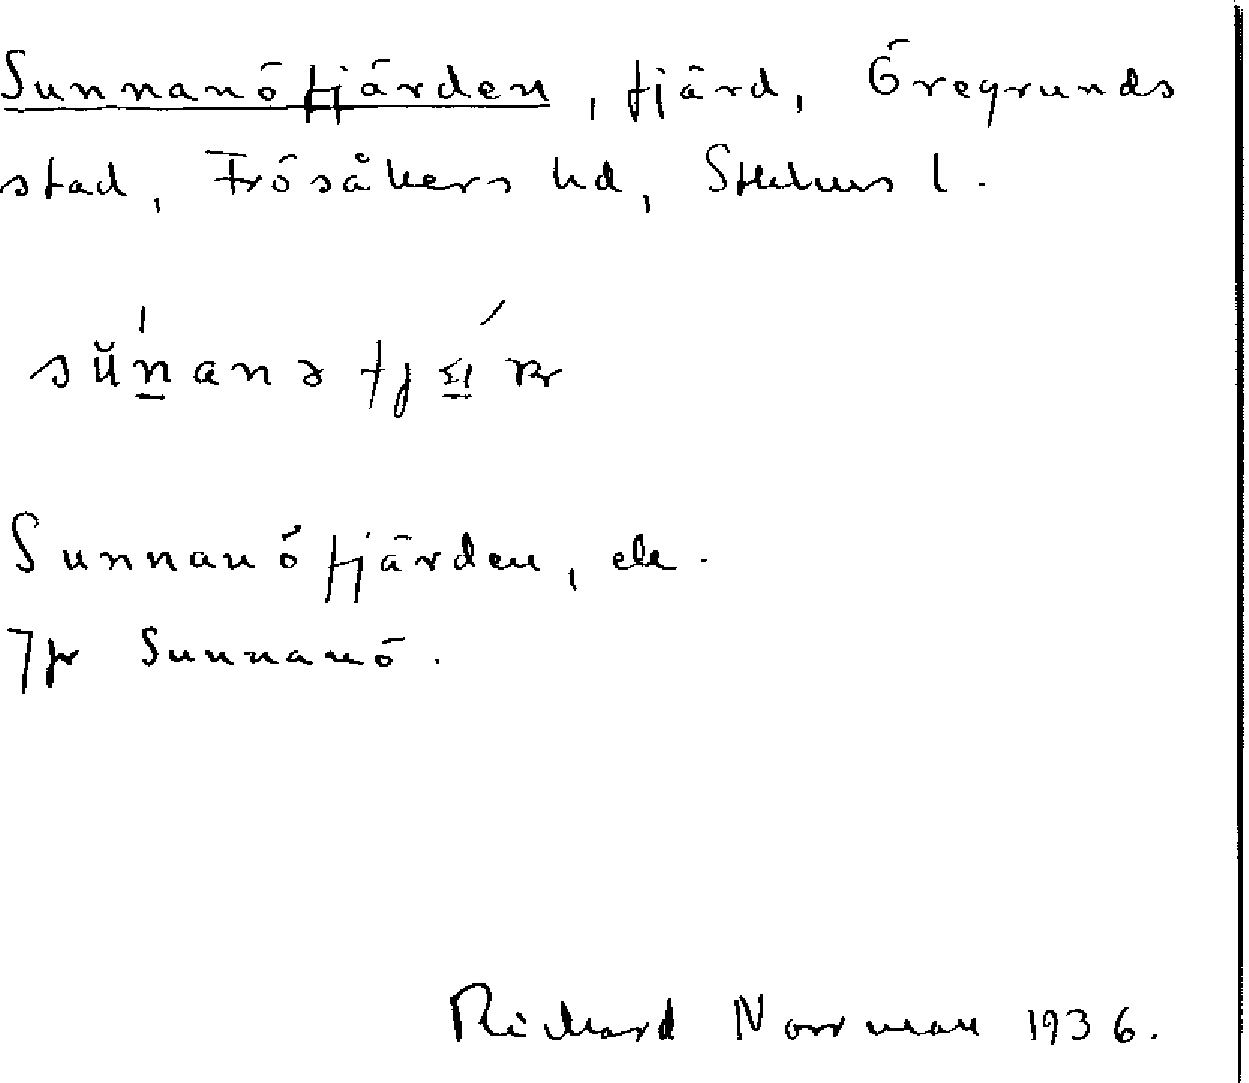 Sunnanöfjärden, fjärd, Öregrunds
stad, Frösåkers hd, Sthlms l.
Sunnanöfjärden, ek.
Jfr Sunnanö.
Richard Norrman 1936.